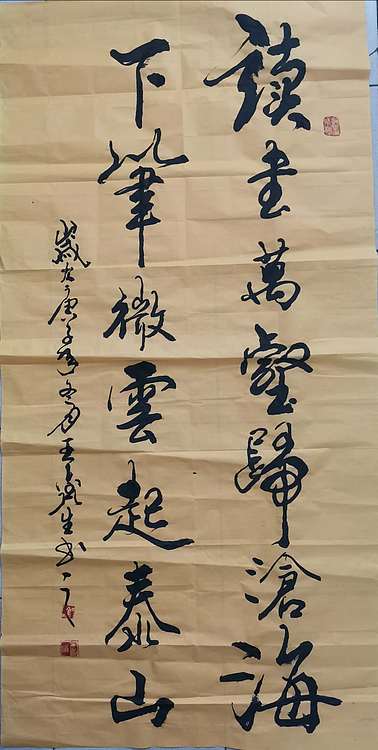 讀書萬壑歸滄海
下筆微雲起泰山
歲在庚子年冬月王生书